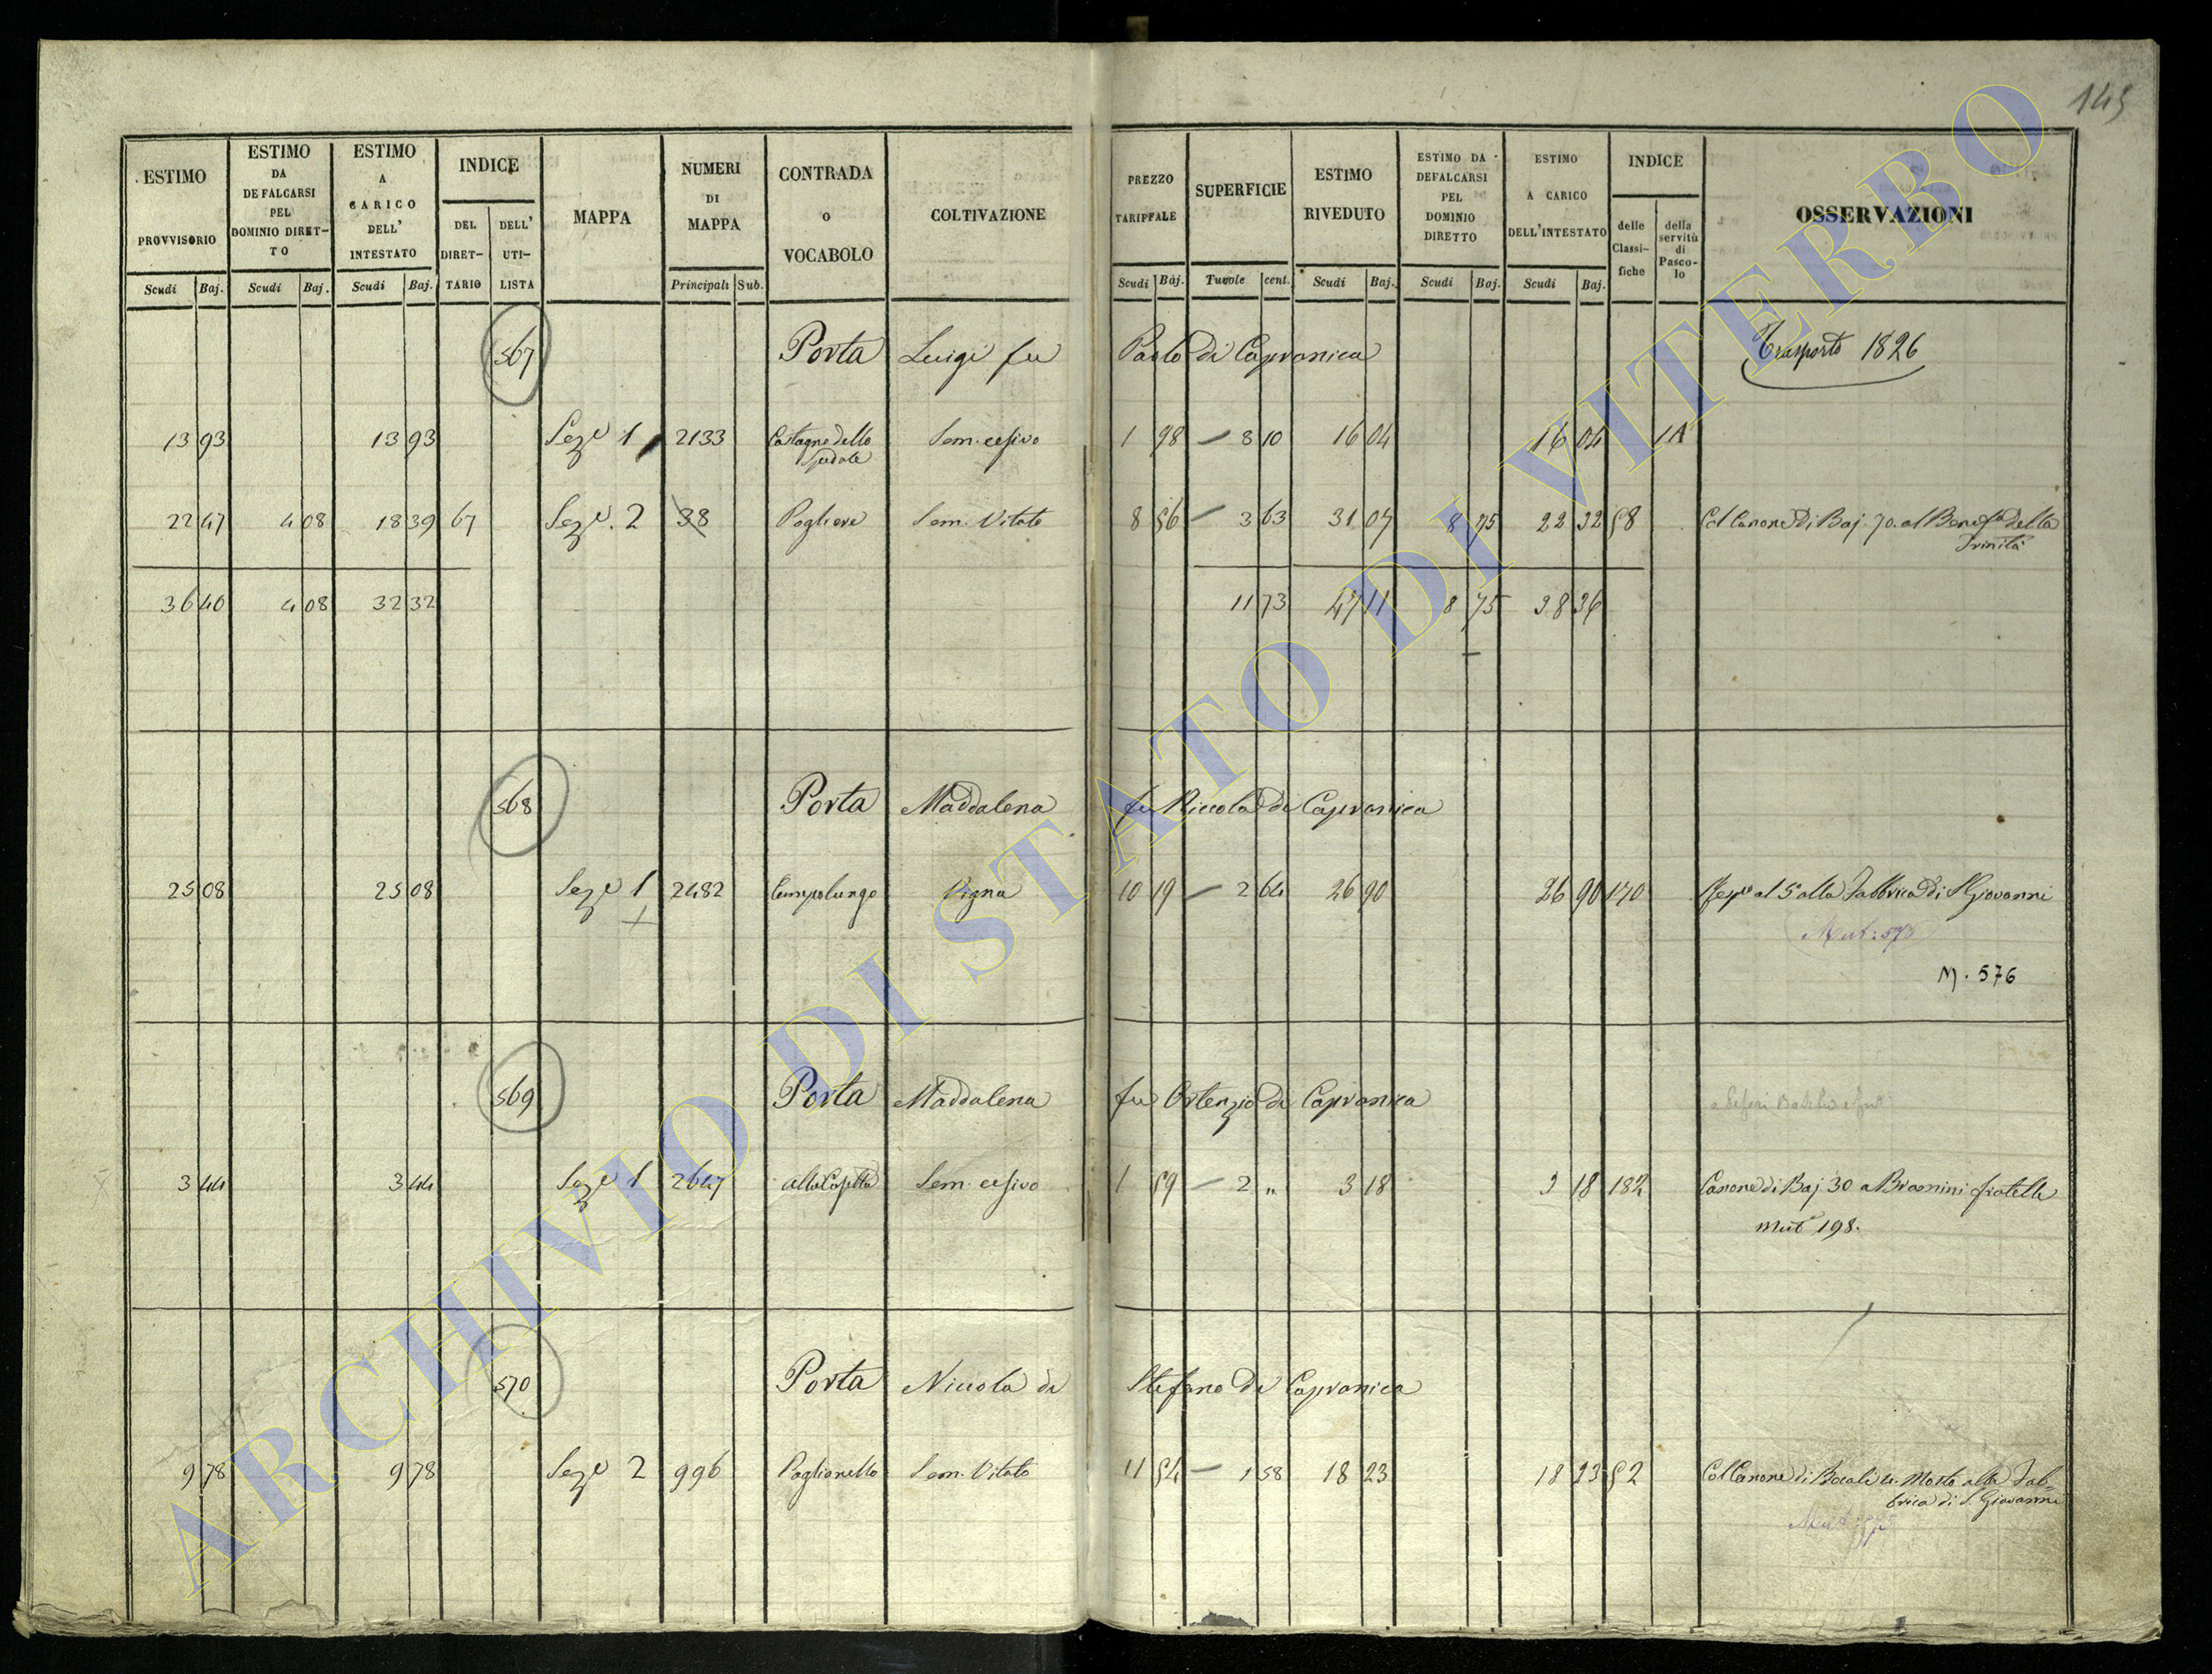 145
ESTIMO PROVVISORIO Scudi Baj.
ESTIMO DA DEFALCARSI PEL DOMINIO DIRET-TO Scudi Baj.
ESTIMO A CARICO DELL' INTESTATO Scudi Baj.
INDICE DEL DIRET-TARIO DELL' UTI-LISTA
MAPPA
NUMERI DI MAPPA Principali Sub.
CONTRADA o VOCABOLO
COLTIVAZIONE
PREZZO TARIFFALE Scudi Baj.
SUPERFICIE Tuvole cent.
ESTIMO RIVEDUTO Scudi Baj.
ESTIMO DA DEFALCARSI PEL DOMINIO DIRETTO Scudi Baj.
ESTIMO A CARICO DELL'INTESTATO Scudi Baj.
INDICE delle Classi-fiche della servitù di Pasco-lo
OSSERVAZIONI
567 Porta Luigi fu Paolo di Capranica Trasporto 1826
13 93 13 93 Sez.e 1 2133 Castagne dello Spedale Sem. cesivo 1 98 — 8 10 16 04 16 04 1A
22 47 4 08 18 39 67 Sez.e 2 38 Pogliere Sem. Vitato 8 56 — 3 63 31 07 8 75 22 32 58 Col Canone di Baj. 70. al Benef.o della
Trinità
36 40 4 08 32 32 11 73 47 11 8 75 38 36
568 Porta Maddalena fu Niccola di Capranica
25 08 25 08 Sez.e 1 2482 Campolungo Vigna 10 19 — 2 64 26 90 26 90 170 al 5.a alla Fabbrica di S. Giovanni
M. 576
569 Porta Maddalena fu Ortenzio di Capranica
3 44 3 44 Sez.e 1 2647 alla Capella Sem. cesivo 1 59 — 2 " 3 18 3 18 182 Canone di Baj 30 a Bramini fratelli
Mut.e 198.
570 Porta Niccola di Stefano di Capranica
9 78 9 78 Sez.e 2 996 Poglianello Sem. Vitato 11 54 — 1 58 18 23 18 23 52 Col Canone di Bocali 4. Mosto alla Fab-
brica di S. Giovanni
ARCHIVIO DI STATO DI VITERBO